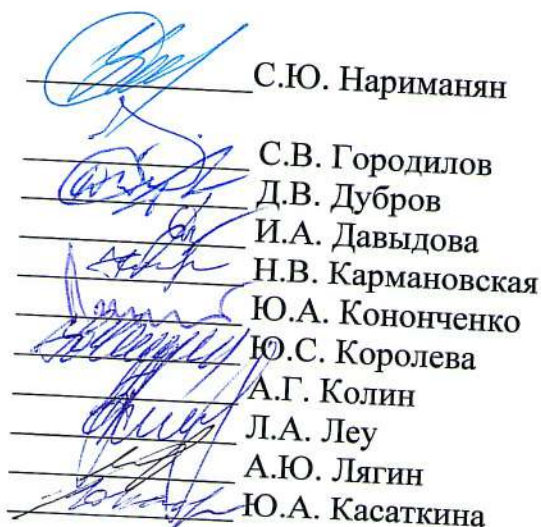 С.Ю. Нариманян
С.В. Городилов
Д.В. Дубров
И.А. Давыдова
Н.В. Кармановская
Ю.А. Кононченко
Ю.С. Королева
А.Г. Колин
Л.А. Леу
А.Ю. Лягин
Ю.А. Касаткина